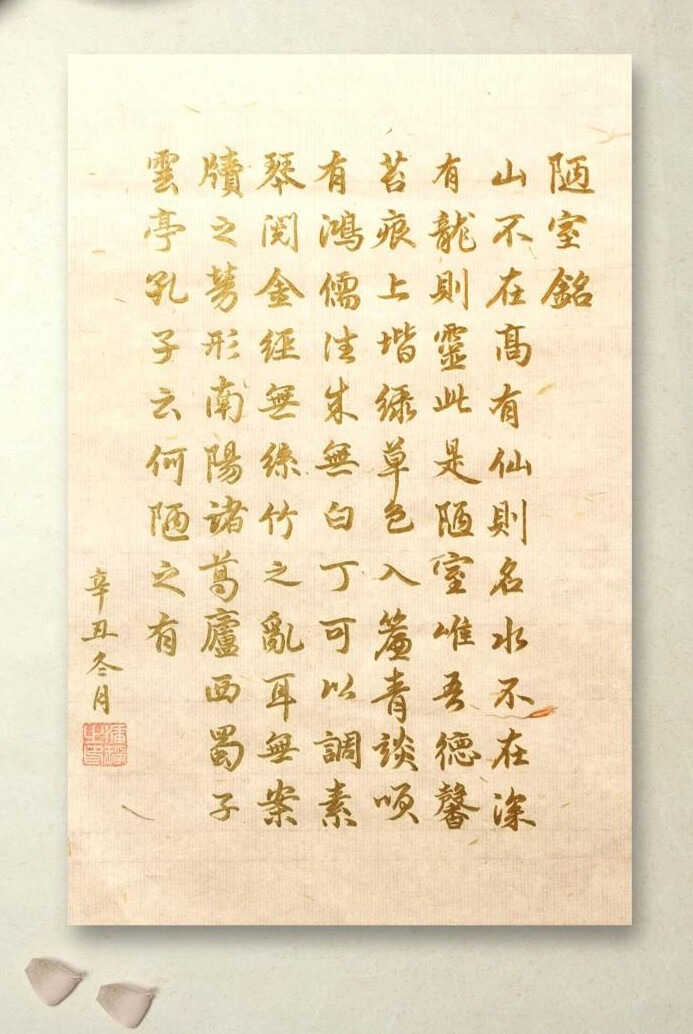 陋室銘
山不在高有仙則名水不在深
有龍則靈此是陋室唯吾德馨
苔痕上堦綠草色入簾青談咲
有鴻儒往來無白丁可以調素
琴閱金經無絲竹之亂耳無案
牘之勞形南陽諸葛廬西蜀子
雲亭孔子云何陋之有
辛丑冬月